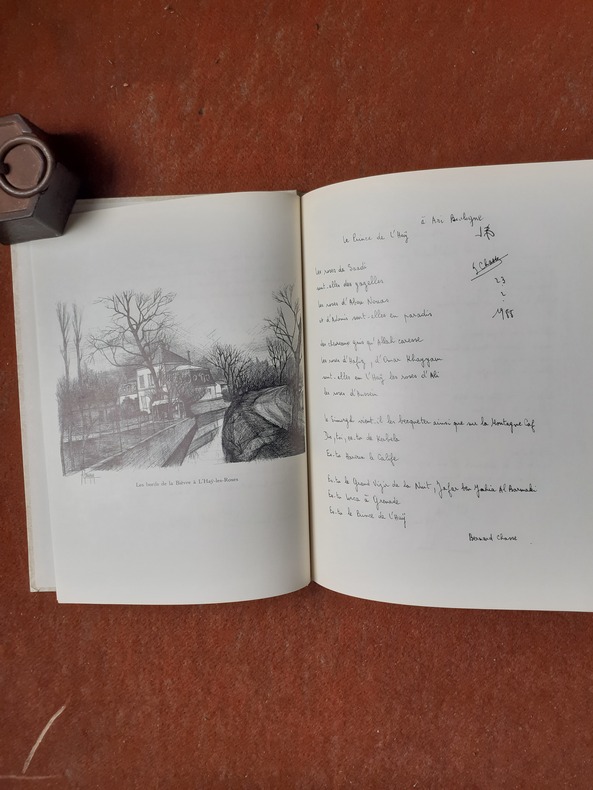 Les bords de la Bièvre à L'Haÿ-les-Roses
à
Le Prince de L'Haÿ
23
2
1988
les roses de Saadi
sont-elles des gazelles
les roses d'Abou Nouas
et d'Adonis sont-elles en paradis
des chevreaux que qu'Allah caresse
les roses d'Hafiz, d'Omar Khayyam
sont-elles en L'Haÿ les roses d'Ali
les roses d'Hussein
le Simurgh vient-il les becqueter ainsi que sur la Montagne Caf
Dis, tu, es-tu de Kerbela
Es-tu Haroun le Calife
Es-tu le Grand Vizir de la Nuit, Jafar ben Yahia Al Barmaki
Es-tu Lorca à Grenade
Es-tu le Prince de L'Haÿ
Bernard Chasse